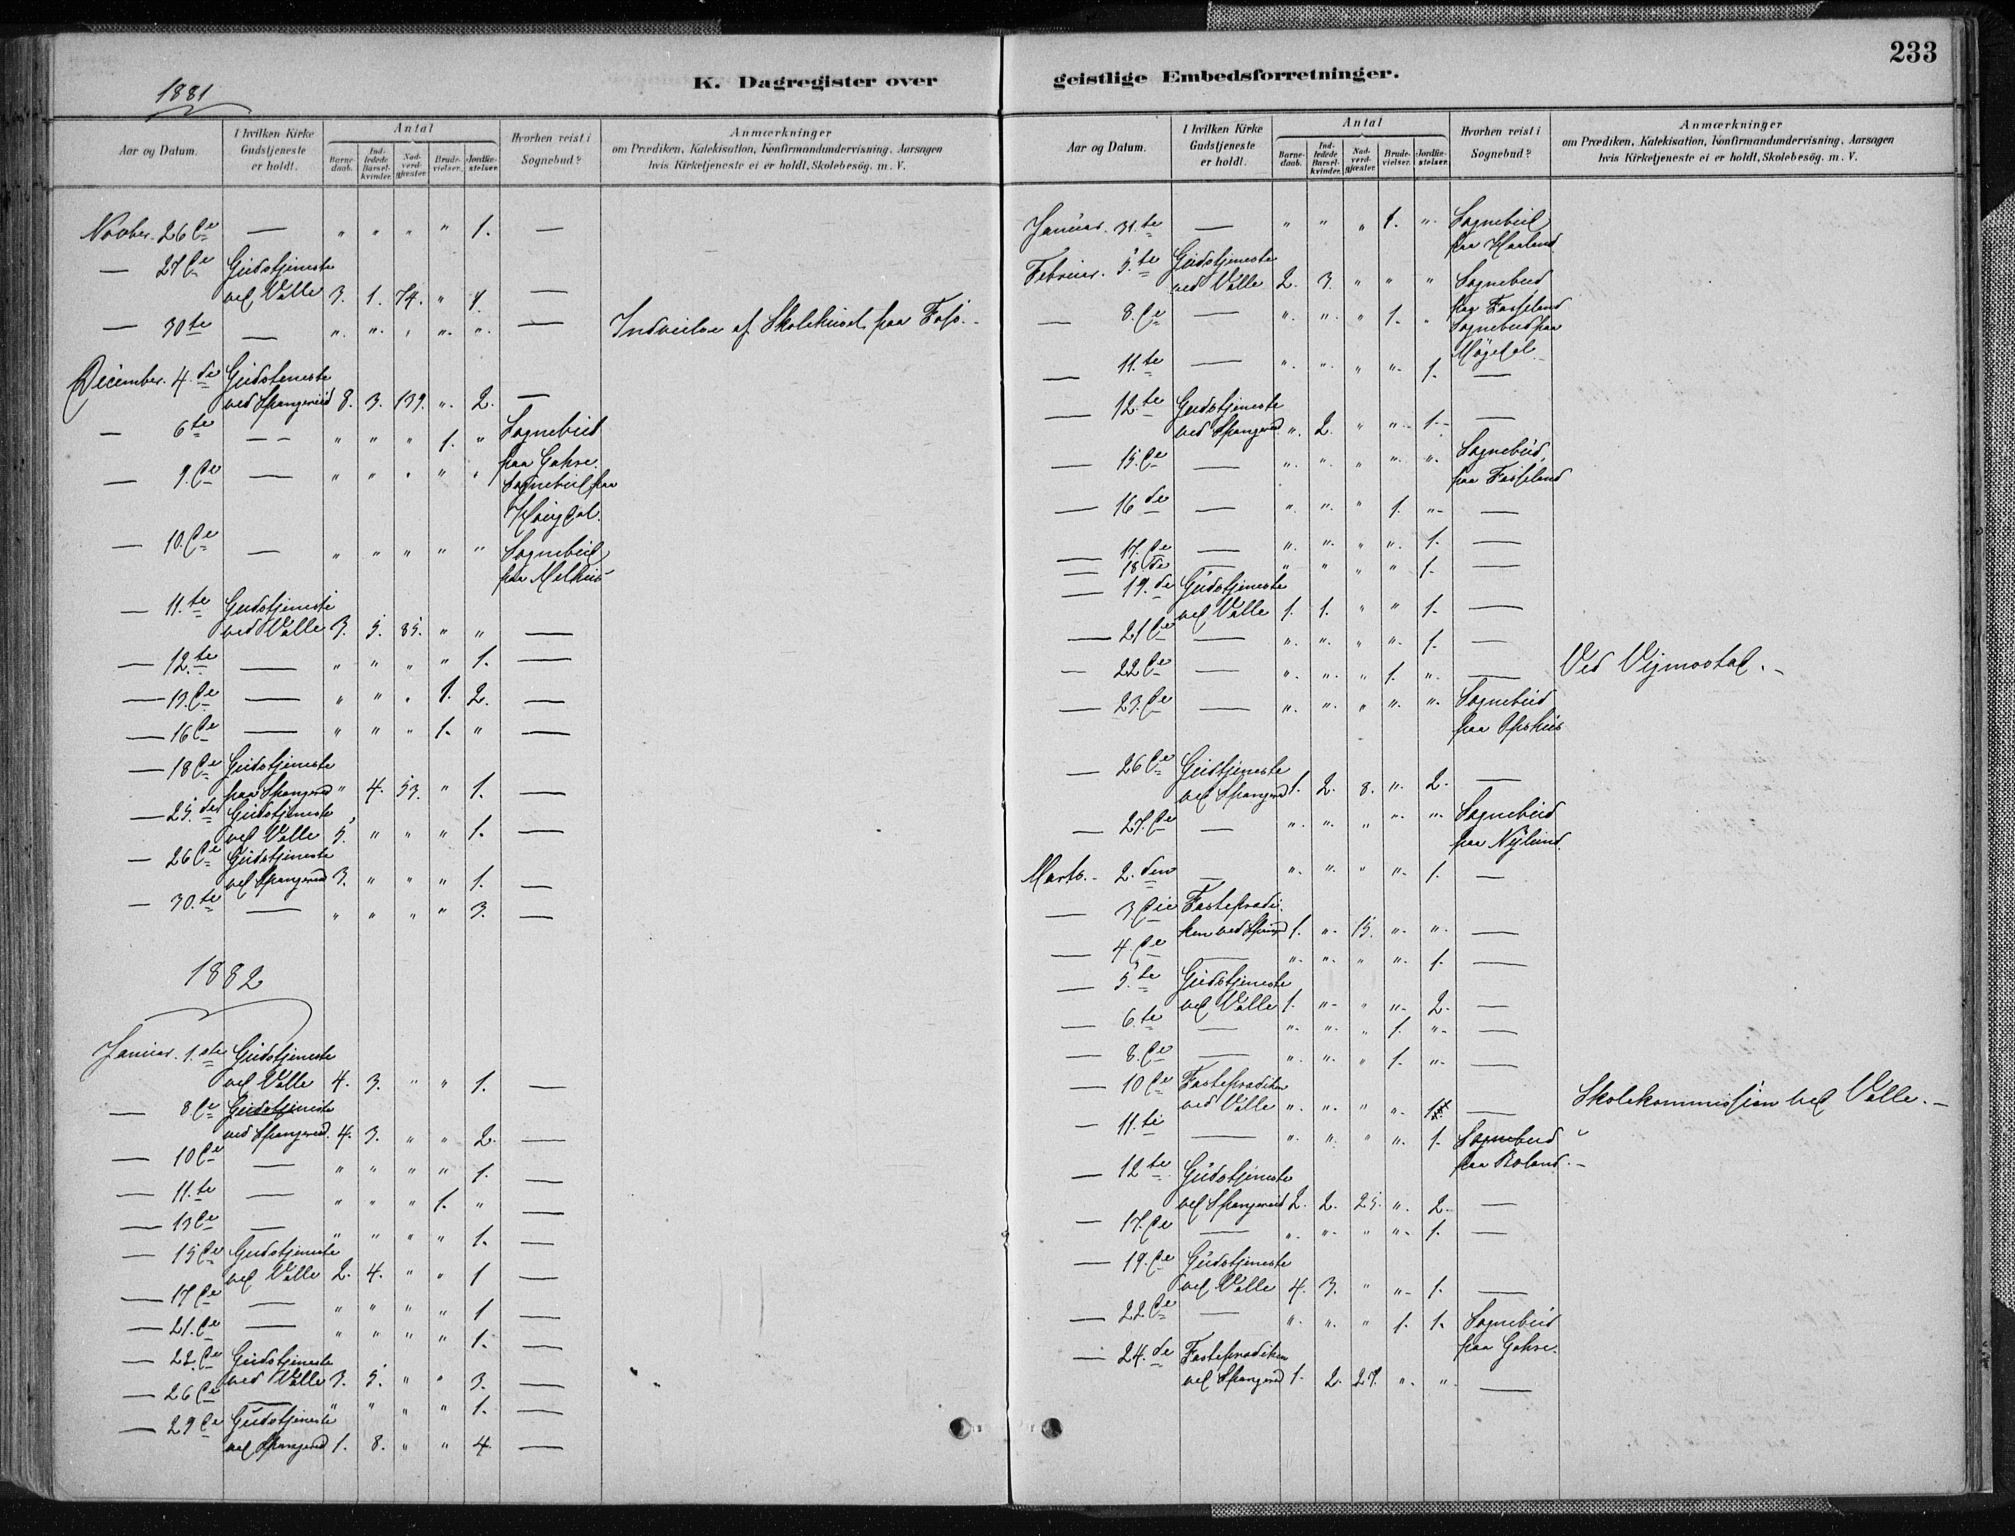 233
K. Dagregister over geistlige Embedsforretninger.
1881
Aar og Datum. I hvilken Kirke Gudstjeneste er holdt. Antal Barnedaab. Indledede Barselkvinder. Nadverdgjæster. Brudevielser. Jordfæstelser. Hvorhen reist i Sognebud? Anmærkninger om Prædiken, Katekisation, Konfirmandundervisning, Aarsagen hvis Kirketjeneste ei er holdt, Skolebesøg. m. V.
Novber. 26de — " " " " 1. —
— 27de Gudstjeneste
ved Valle 3. 1. 74. " —
— 30te — " " " " " — Indvielse af Skolehuset paa
December. 4.de Gudstjeneste
ved Spangereid 8. 3. 139. " 2. —
— 6te — — " " " 1. " Sognebud
paa Gahre.
— 9.de — " " " " " Sognebud paa
Høigdal.
— 10.de — " " " " " Sognebud
paa Melhus
— 11.te Gudstjeneste
ved Valle 3. 5. 85. " " —
— 12.te — " " " " 1. —
— 13.de — " " " 1. 2. —
— 16de — " " " 1. " —
— 18de Gudstjeneste
paa Spangereid " 4. 53. " 1. —
— 25.de Gudstjeneste
ved Valle 5. " " " 1. —
— 26de Gudstjeneste
ved Spangereid 3. " " " 1. —
— 30.te — " " " " 3. —
1882
Januar. 1.ste Gudstjeneste
ved Valle 4. 3. " " 1. —
— 8de Gudstjeneste
ved Spangereid. 4. 3. " " 2. —
— 10de — " " " " 1. —
— 11.te — " " " 1. " —
— 13de — " " " " 1. —
— 15de Gudstjeneste
ved Valle 2. 4. " " 1 —
— 17de — " " " " 1 —
— 21.de — " " " " 1. —
— 22.de Gudstjeneste
ved Valle 3. 5. " " 3. —
— 26de — " " " " 1. —
— 29de Gudstjeneste
ved Spangereid 1. 8. " " 4. —
Aar og Datum. I hvilken Kirke Gudstjeneste er holdt. Antal Barnedaab. Indledede Barselkvinder. Nadverdgjæster. Brudevielser. Jordfæstelser. Hvorhen reist i Sognebud? Anmærkninger om Prædiken, Katekisation, Konfirmandundervisning, Aarsagen hvis Kirketjeneste ei er holdt, Skolebesøg. m. V.
Januar. 31.te — " " " 1. " Sognebud
paa Haaland
Februar. 5.te Gudstjeneste
ved Valle 2. 3. " " " Sognebud
paa Fasseland
— 8.de — " " " 1. " Sognebud paa
— 11.te — " " " " 1. —
— 12.te Gudstjeneste
ved Spangereid " 2. " " 1. —
— 15.de — " " " " " Sognebud
paa Fasseland
— 16de — " " " 1. " —
— 17.de — " " " " 1. —
— 18de — " " " " 1. —
— 19.de Gudstjeneste
ved Valle 1. 1. " " 1. —
— 21de — " " " " 1. —
— 22de — " " " 1. " — Ved Vigmostad. —
— 23.de — " " " " " Sognebud
paa Opshus
— 26de Gudstjeneste
ved Spangereid 1. 2. 8. " 2. —
— 27.de — " " " " " Sognebud
paa Njylund.
Marts. 2.den — " " " " 1. —
— 3.die Fasteprædi-
ken ved 1. " 15. " " —
— 4.de — " " " " 1. —
— 5te Gudstjeneste
ved Valle 1. " " " 2. —
— 6.te — " " " 1. " —
— 8.de — " " " 1. " —
— 10de Fasteprædiken
ved Valle " " " " — Skolekommission ved Valle. —
— 11.te — " " " " 1. Sognebud
paa Boland. —
— 12te Gudstjeneste
ved Spangereid 2. 2. 25. " 2. —
— 17.de — " " " " 1. —
— 19.de Gudstjeneste
ved Valle 4. 3. " " 1. —
— 22.de — " " " 1. 1. Sognebud
paa Gahre.
— 24.de Fasteprædiken
ved Spangereid 1. 2. 27. " " —